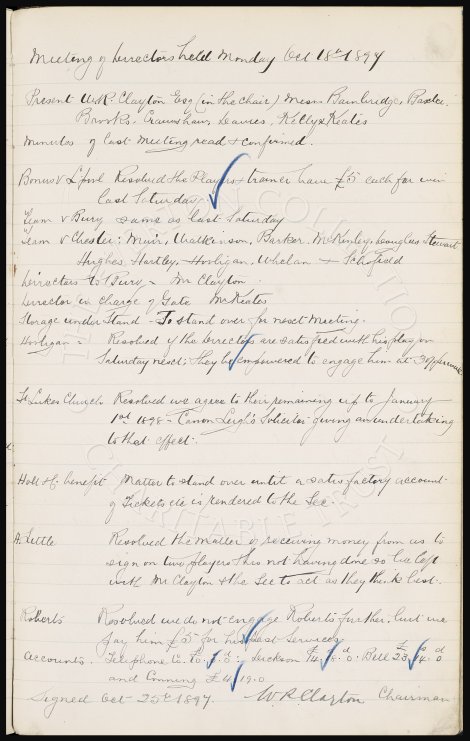 Meeting of Directors held Monday Oct 18th 1897
Present W.R. Clayton Esq (in the chair) Messrs Bainbridge, Baxter,
Brooks, Crawshaw, Davies, Kelly & Keates
Minutes of last Meeting read & confirmed.
Bonus v L'pool Resolved the Players & trainer have £5 each for win
last Saturday.
Team v Bury same as last Saturday
Team v Chester: Muir, Watkinson, Barker, McKinley, Douglas, Stewart
Hughes, Hartley, Hooligan, Whelan & Schofield
Directors to Bury - Mr Clayton
Director in charge of Gate Mr Keates
Storage under Stand - To stand over for next Meeting.
Hooligan - Resolved if the Directors are satisfied with his play on
Saturday next; they be empowered to engage him at £3 per week
St Lukes Church Resolved we agree to their remaining up to January
1st 1898 - Canon Leigh's Solicitor giving an undertaking
to that effect.
Holt &c. benefit Matter to stand over until a satisfactory account
of Tickets etc is rendered to the Sec.
A. Little Resolved the Matter of receiving money from us to
sign on two players & his not having done so be left
with Mr Clayton & the Sec to act as they think best.
Roberts Resolved we do not engage Roberts further, but we
pay him £5 for his past Services
Accounts. Telephone Co Jackson Bell
and Conning £11/19.0
Signed Oct 25th 1897. W.R. Clayton Chairman